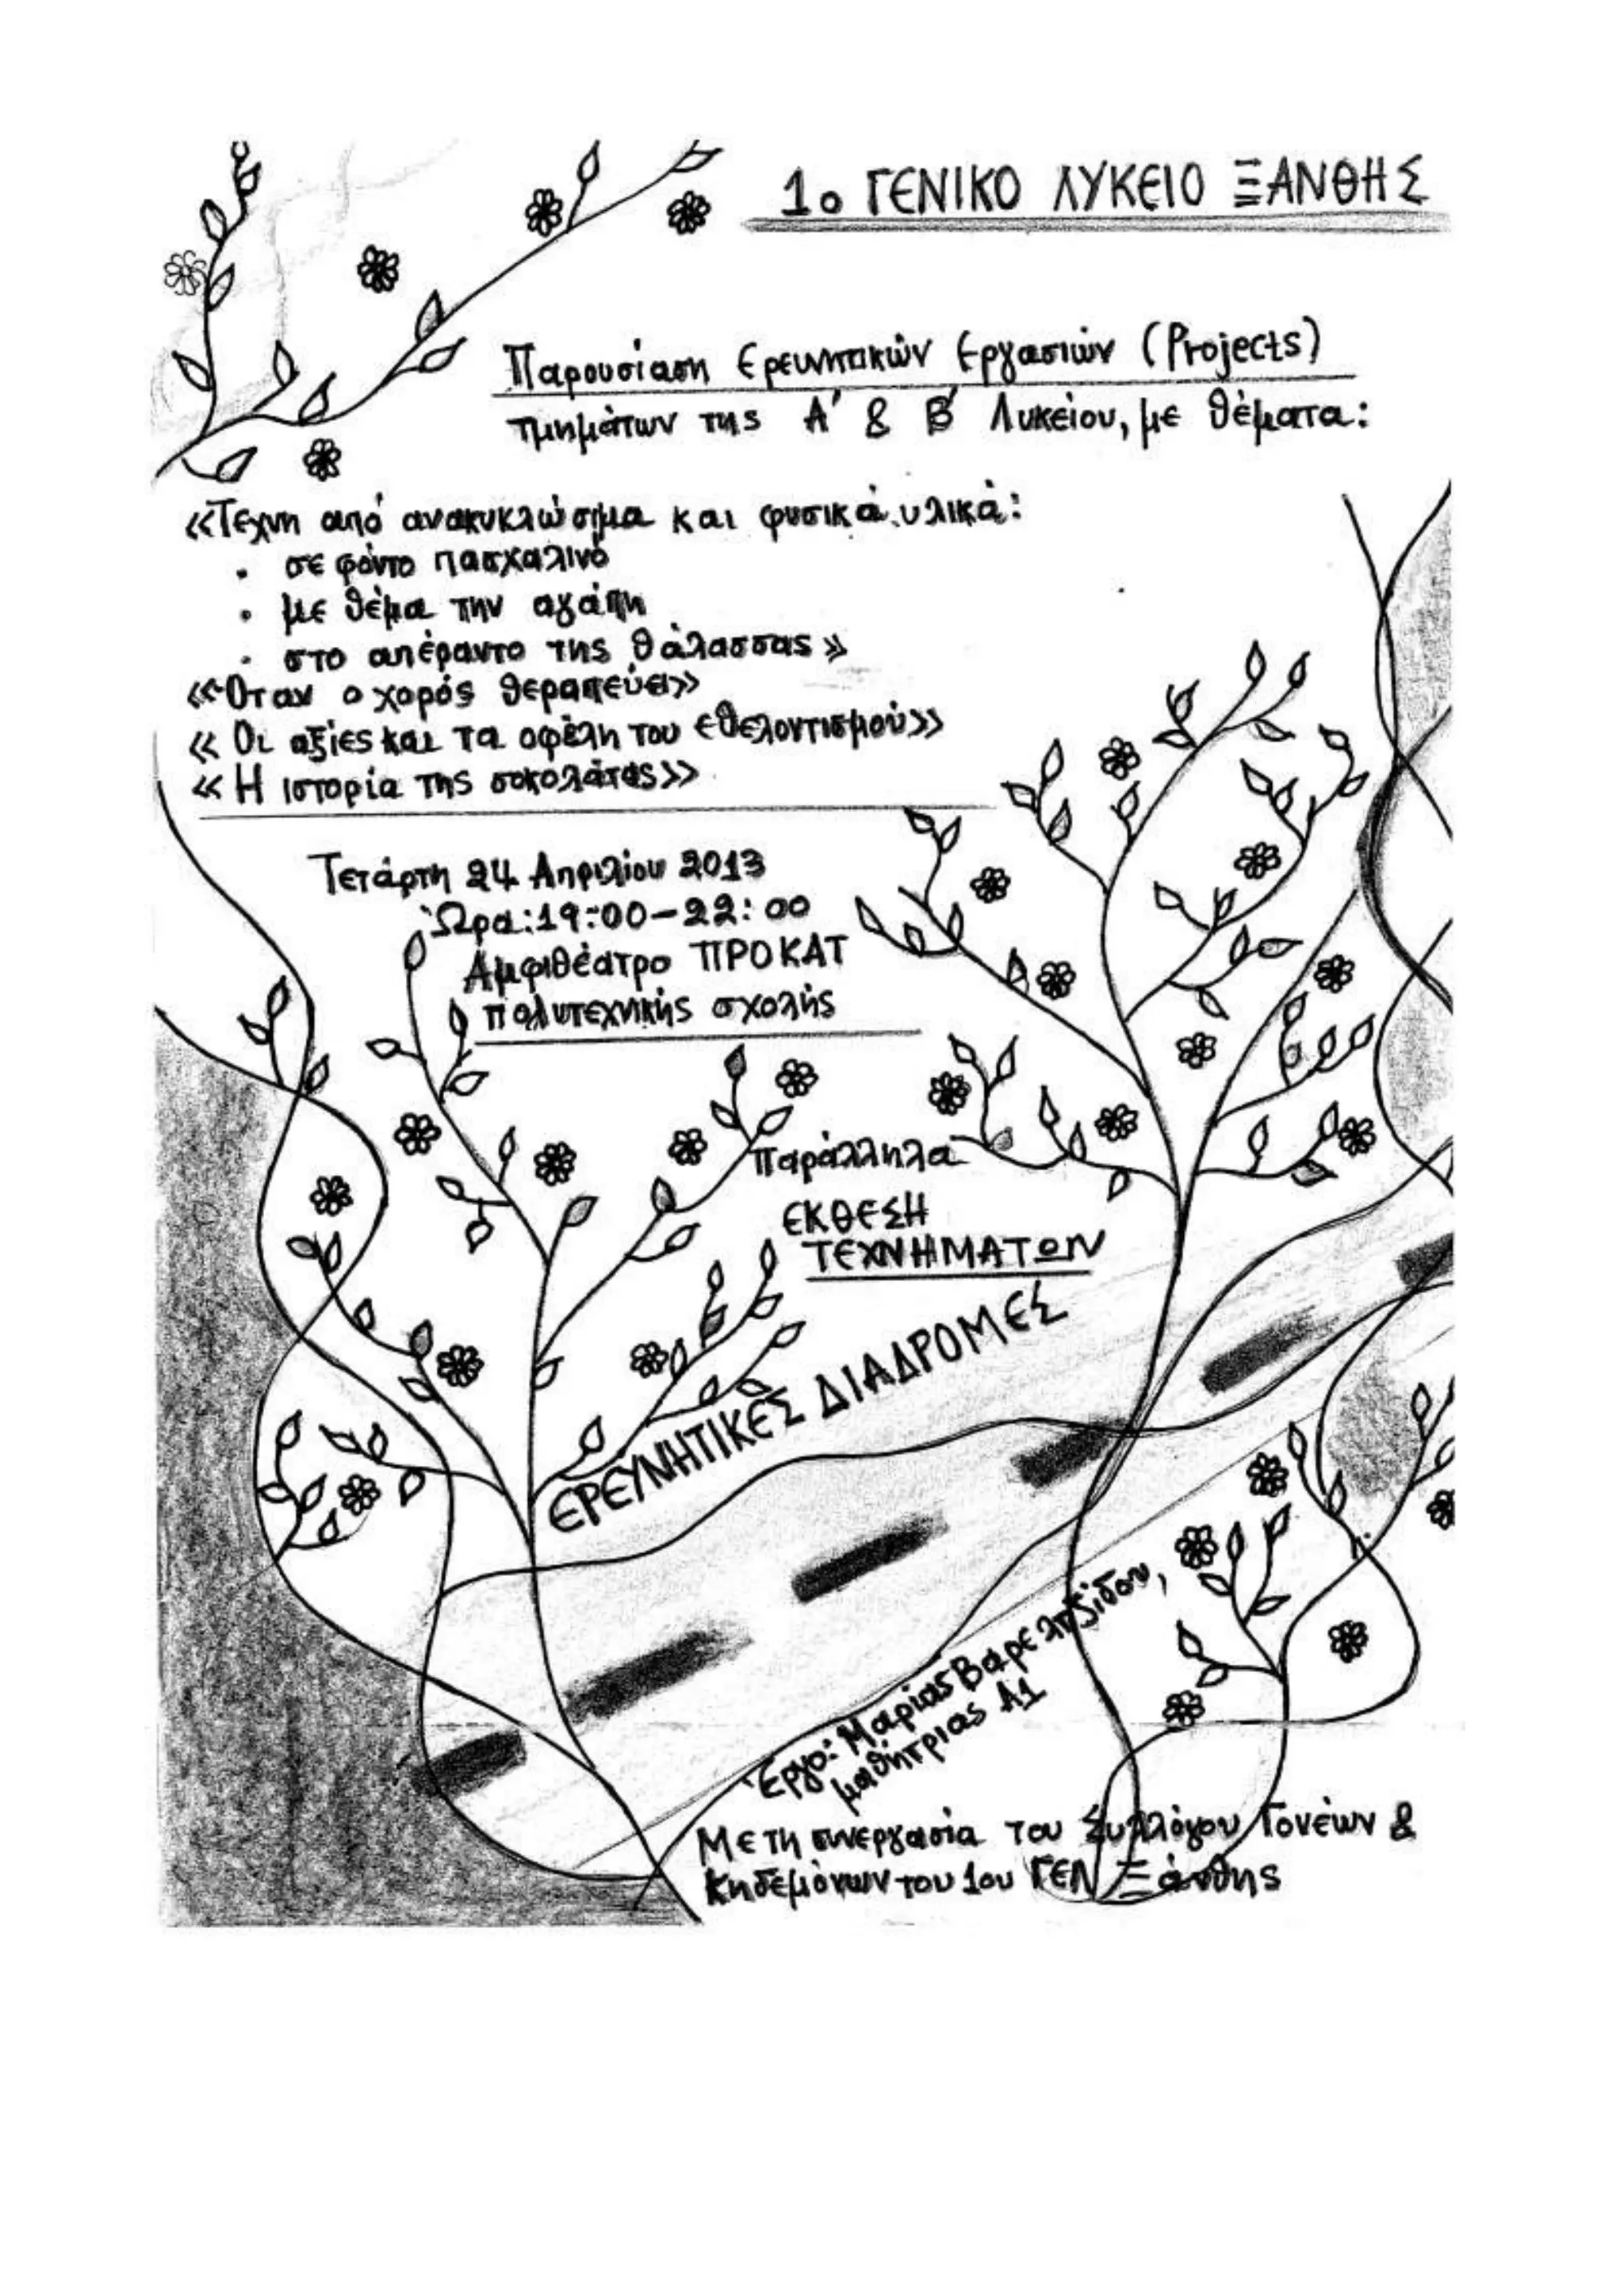 1ο ΓΕΝΙΚΟ ΛΥΚΕΙΟ ΞΑΝΘΗΣ
Παρουσίαση Ερευνητικών Εργασιών (Projects)
τμημάτων της Α' & Β' Λυκείου, με θέματα:
«Τέχνη από ανακυκλώσιμα και φυσικά υλικά:
• σε φόντο πασχαλινό
• με θέμα την αγάπη
• στο απέραντο της θάλασσας»
«Όταν ο χορός θεραπεύει»
«Οι αξίες και τα οφέλη του εθελοντισμού»
«Η ιστορία της σοκολάτας»
Τετάρτη 24 Απριλίου 2013
Ώρα: 19:00-22:00
Αμφιθέατρο ΠΡΟΚΑΤ
πολυτεχνικής σχολής
Παράλληλα
ΕΚΘΕΣΗ
ΤΕΧΝΗΜΑΤΩΝ
ΕΡΕΥΝΗΤΙΚΕΣ ΔΙΑΔΡΟΜΕΣ
Έργο: Μαρίας Βαρελτζίδου,
μαθήτριας Α1
Με τη συνεργασία του Συλλόγου Γονέων &
Κηδεμόνων του 1ου ΓΕΛ Ξάνθης